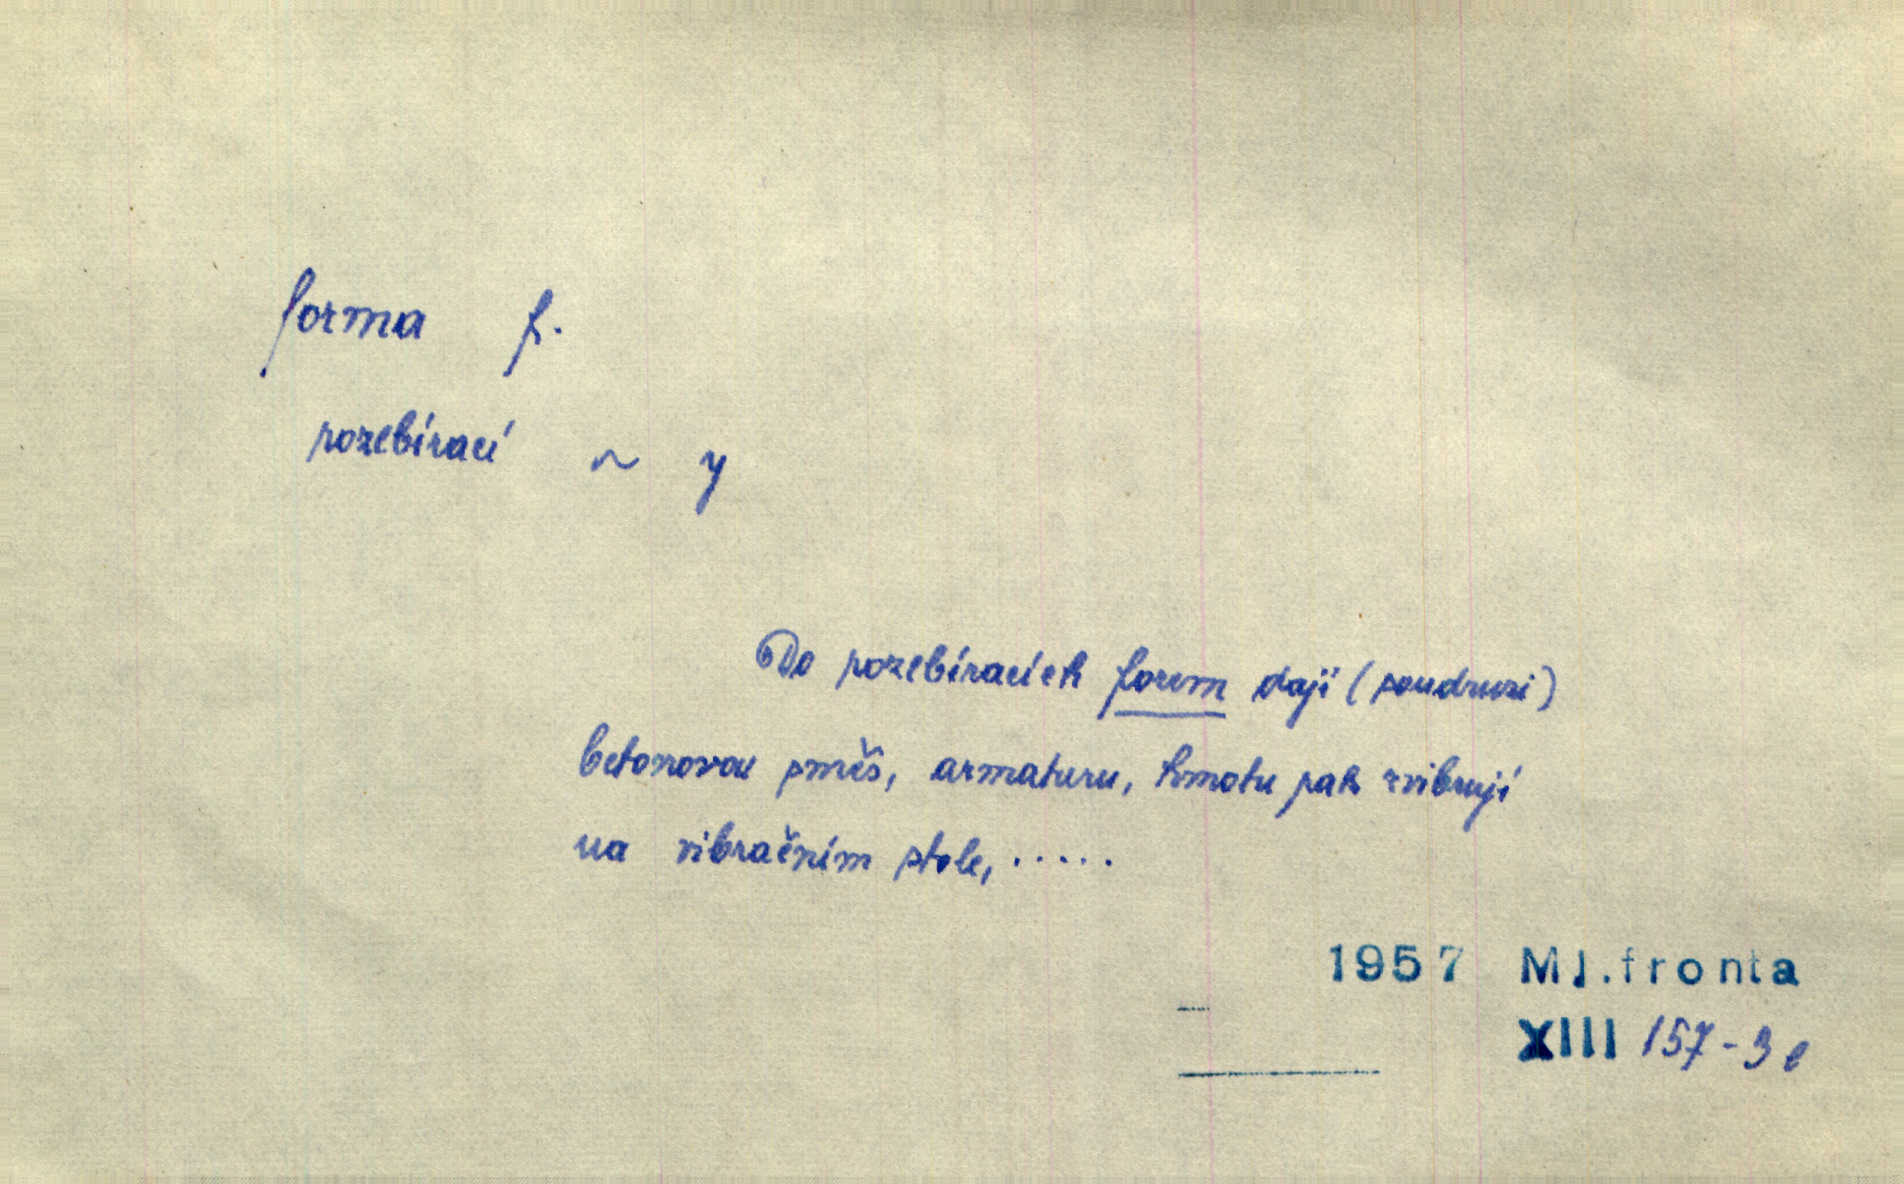 forma f.
rozebírací ~ y
Do rozebíracích forem dají (soudruzi)
betonovou směs, armaturu, hmotu pak zvibrují
na vibračním stole, .....
1957 Ml.fronta
XIII 157-3